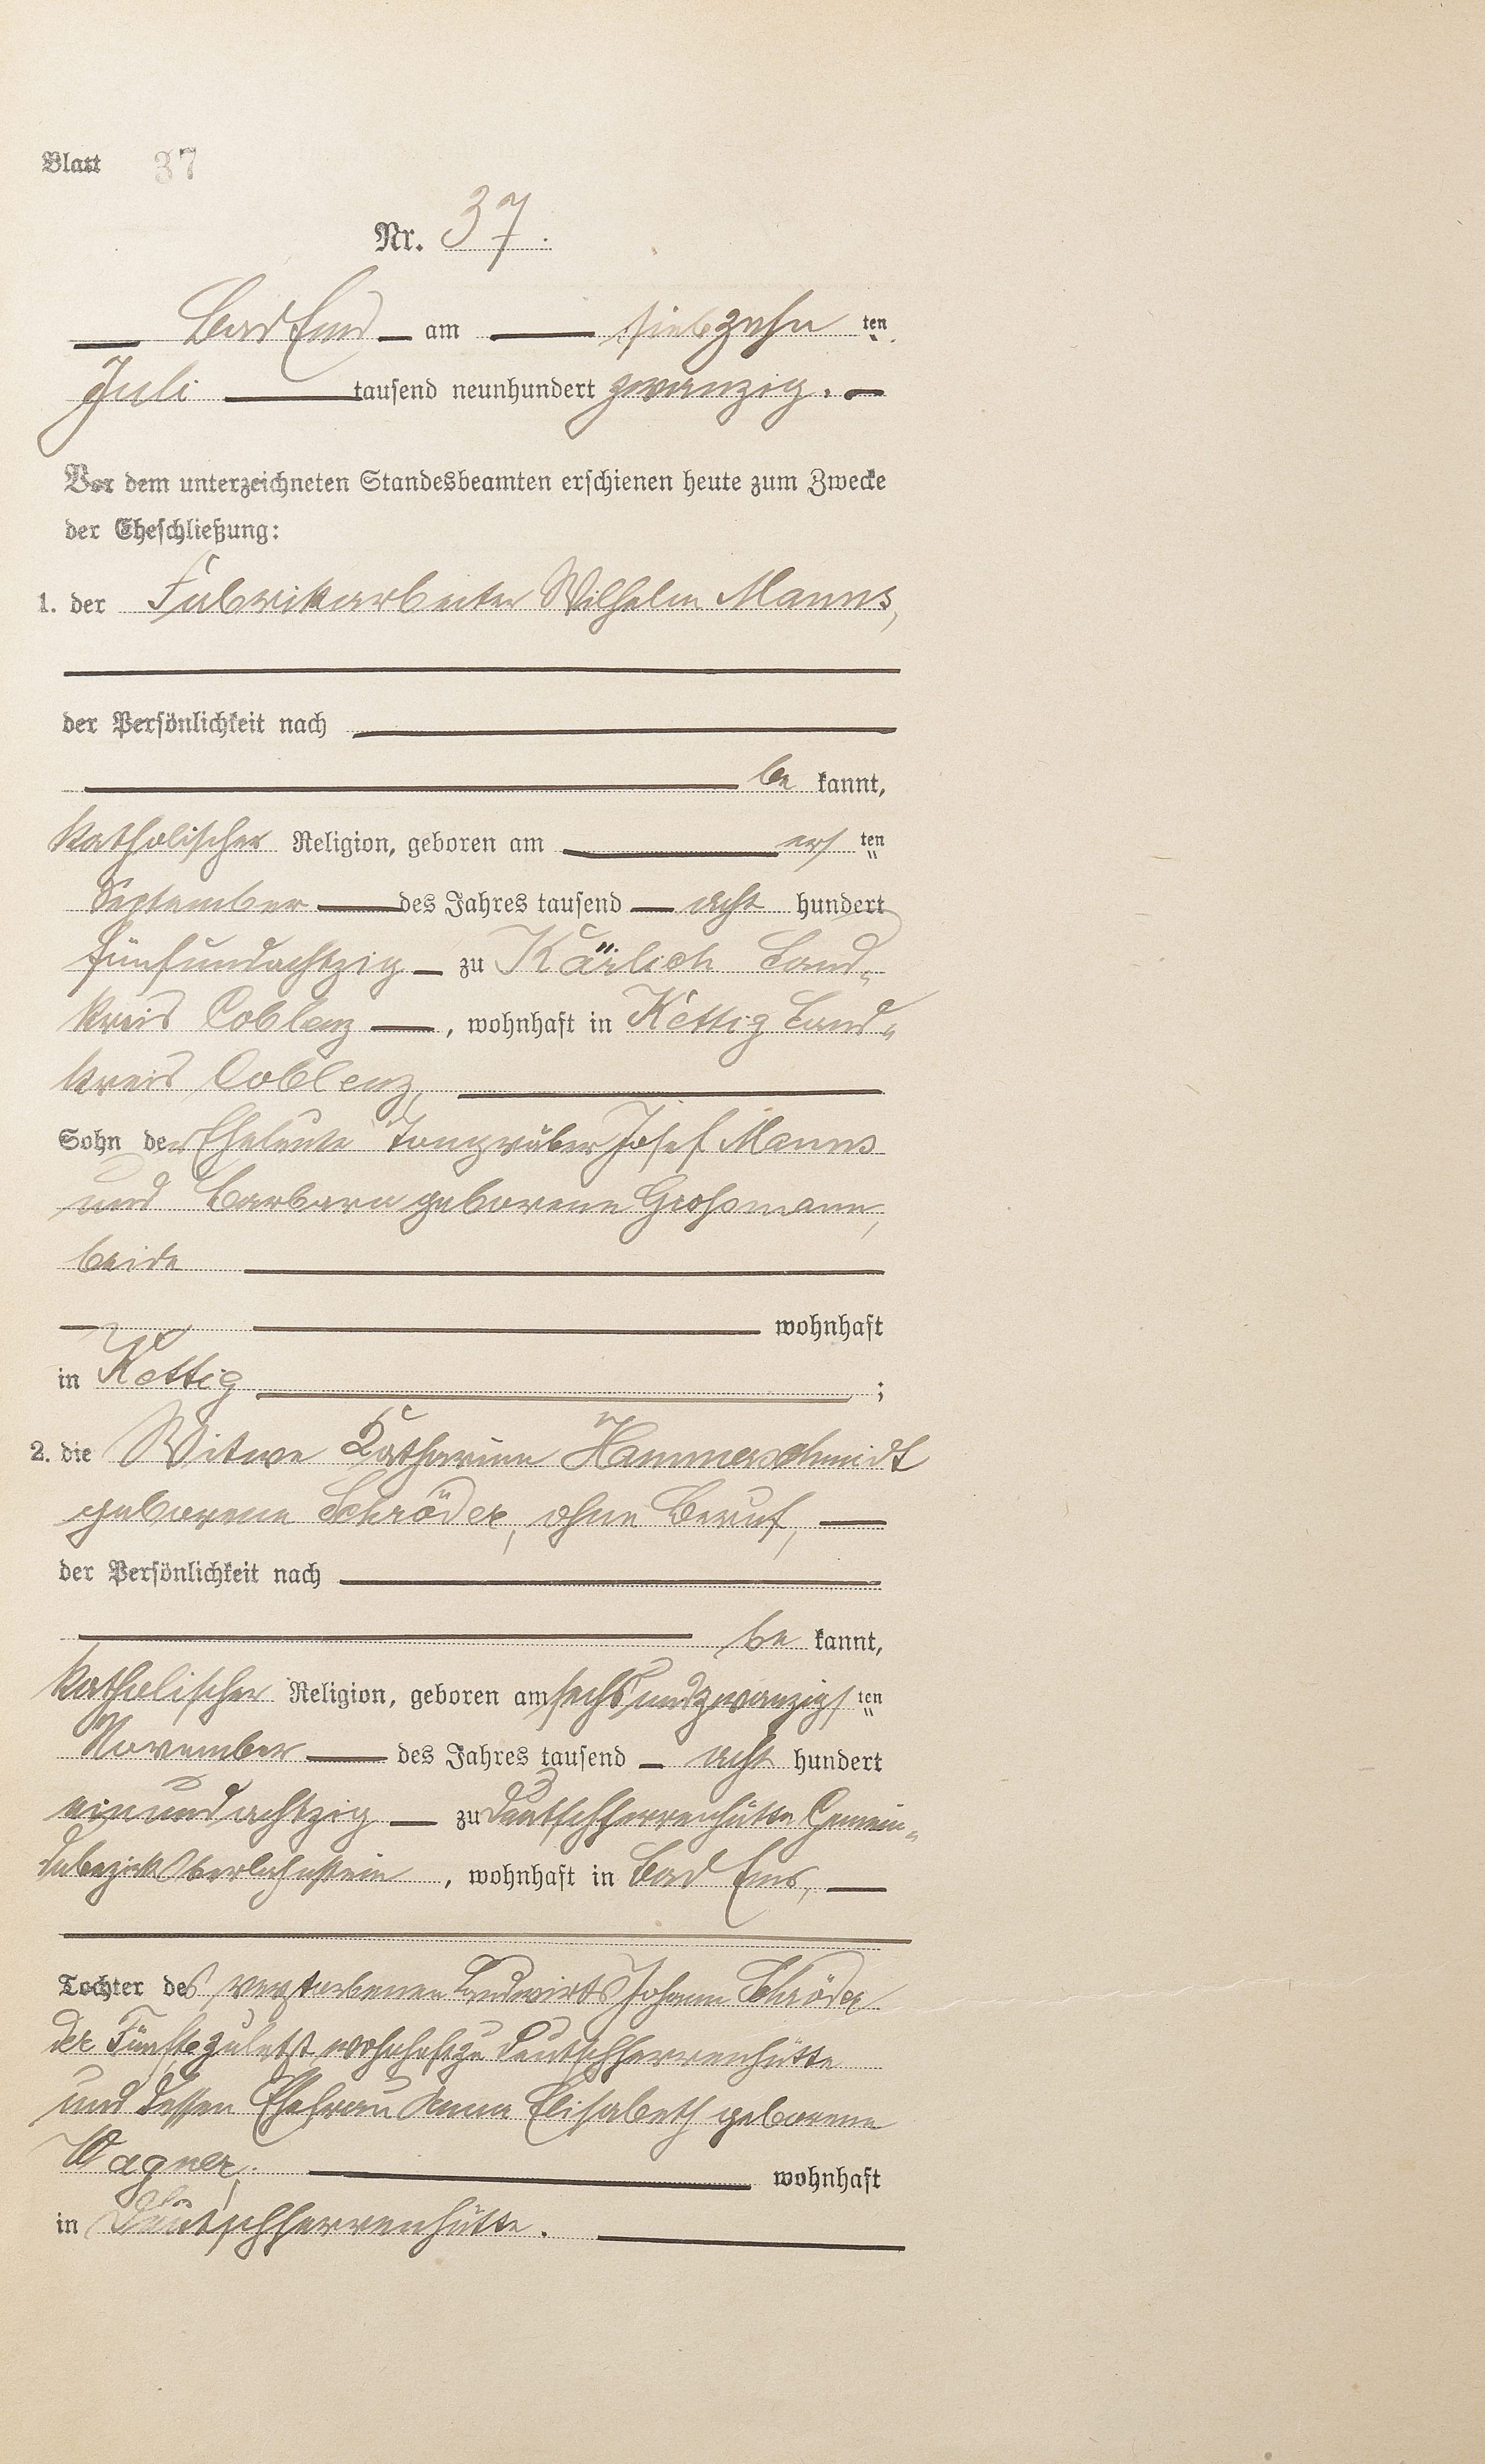 Blatt 37
Nr. 37.
Bad Ems am siebzehn ten
Juli tausend neunhundert zwanzig.
Vor dem unterzeichneten Standesbeamten erschienen heute zum Zwecke
der Eheschließung:
1. der Fabrikarbeiter Wilhelm Manns,
der Persönlichkeit nach
be kannt,
katholischer Religion, geboren am ers ten
September des Jahres tausend acht hundert
fünfundachtzig zu Kärlich Land-
kreis Coblenz, wohnhaft in Kettig Land-
kreis Coblenz,
Sohn der Eheleute Tongräber Josef Manns
und Barbara geborene Grossmann,
beide
wohnhaft
in Kettig ;
2. die Witwe Katharina Hammerschmidt
geborene Schröder, ohne Beruf,
der Persönlichkeit nach
be kannt,
katholischer Religion, geboren am sechsundzwanzigs ten
November des Jahres tausend acht hundert
einundachtzig zu Deutschherrenhütte Gemein-
debezirk Oberlahnstein, wohnhaft in Bad Ems,
Tochter des verstorbenen Landwirts Johann Schröder
der Fünfte zuletzt wohnhaft zu Deutschherrenhütte
und dessen Ehefrau Anna Elisabeth geborene
Wagner, wohnhaft
in Deutschherrenhütte.